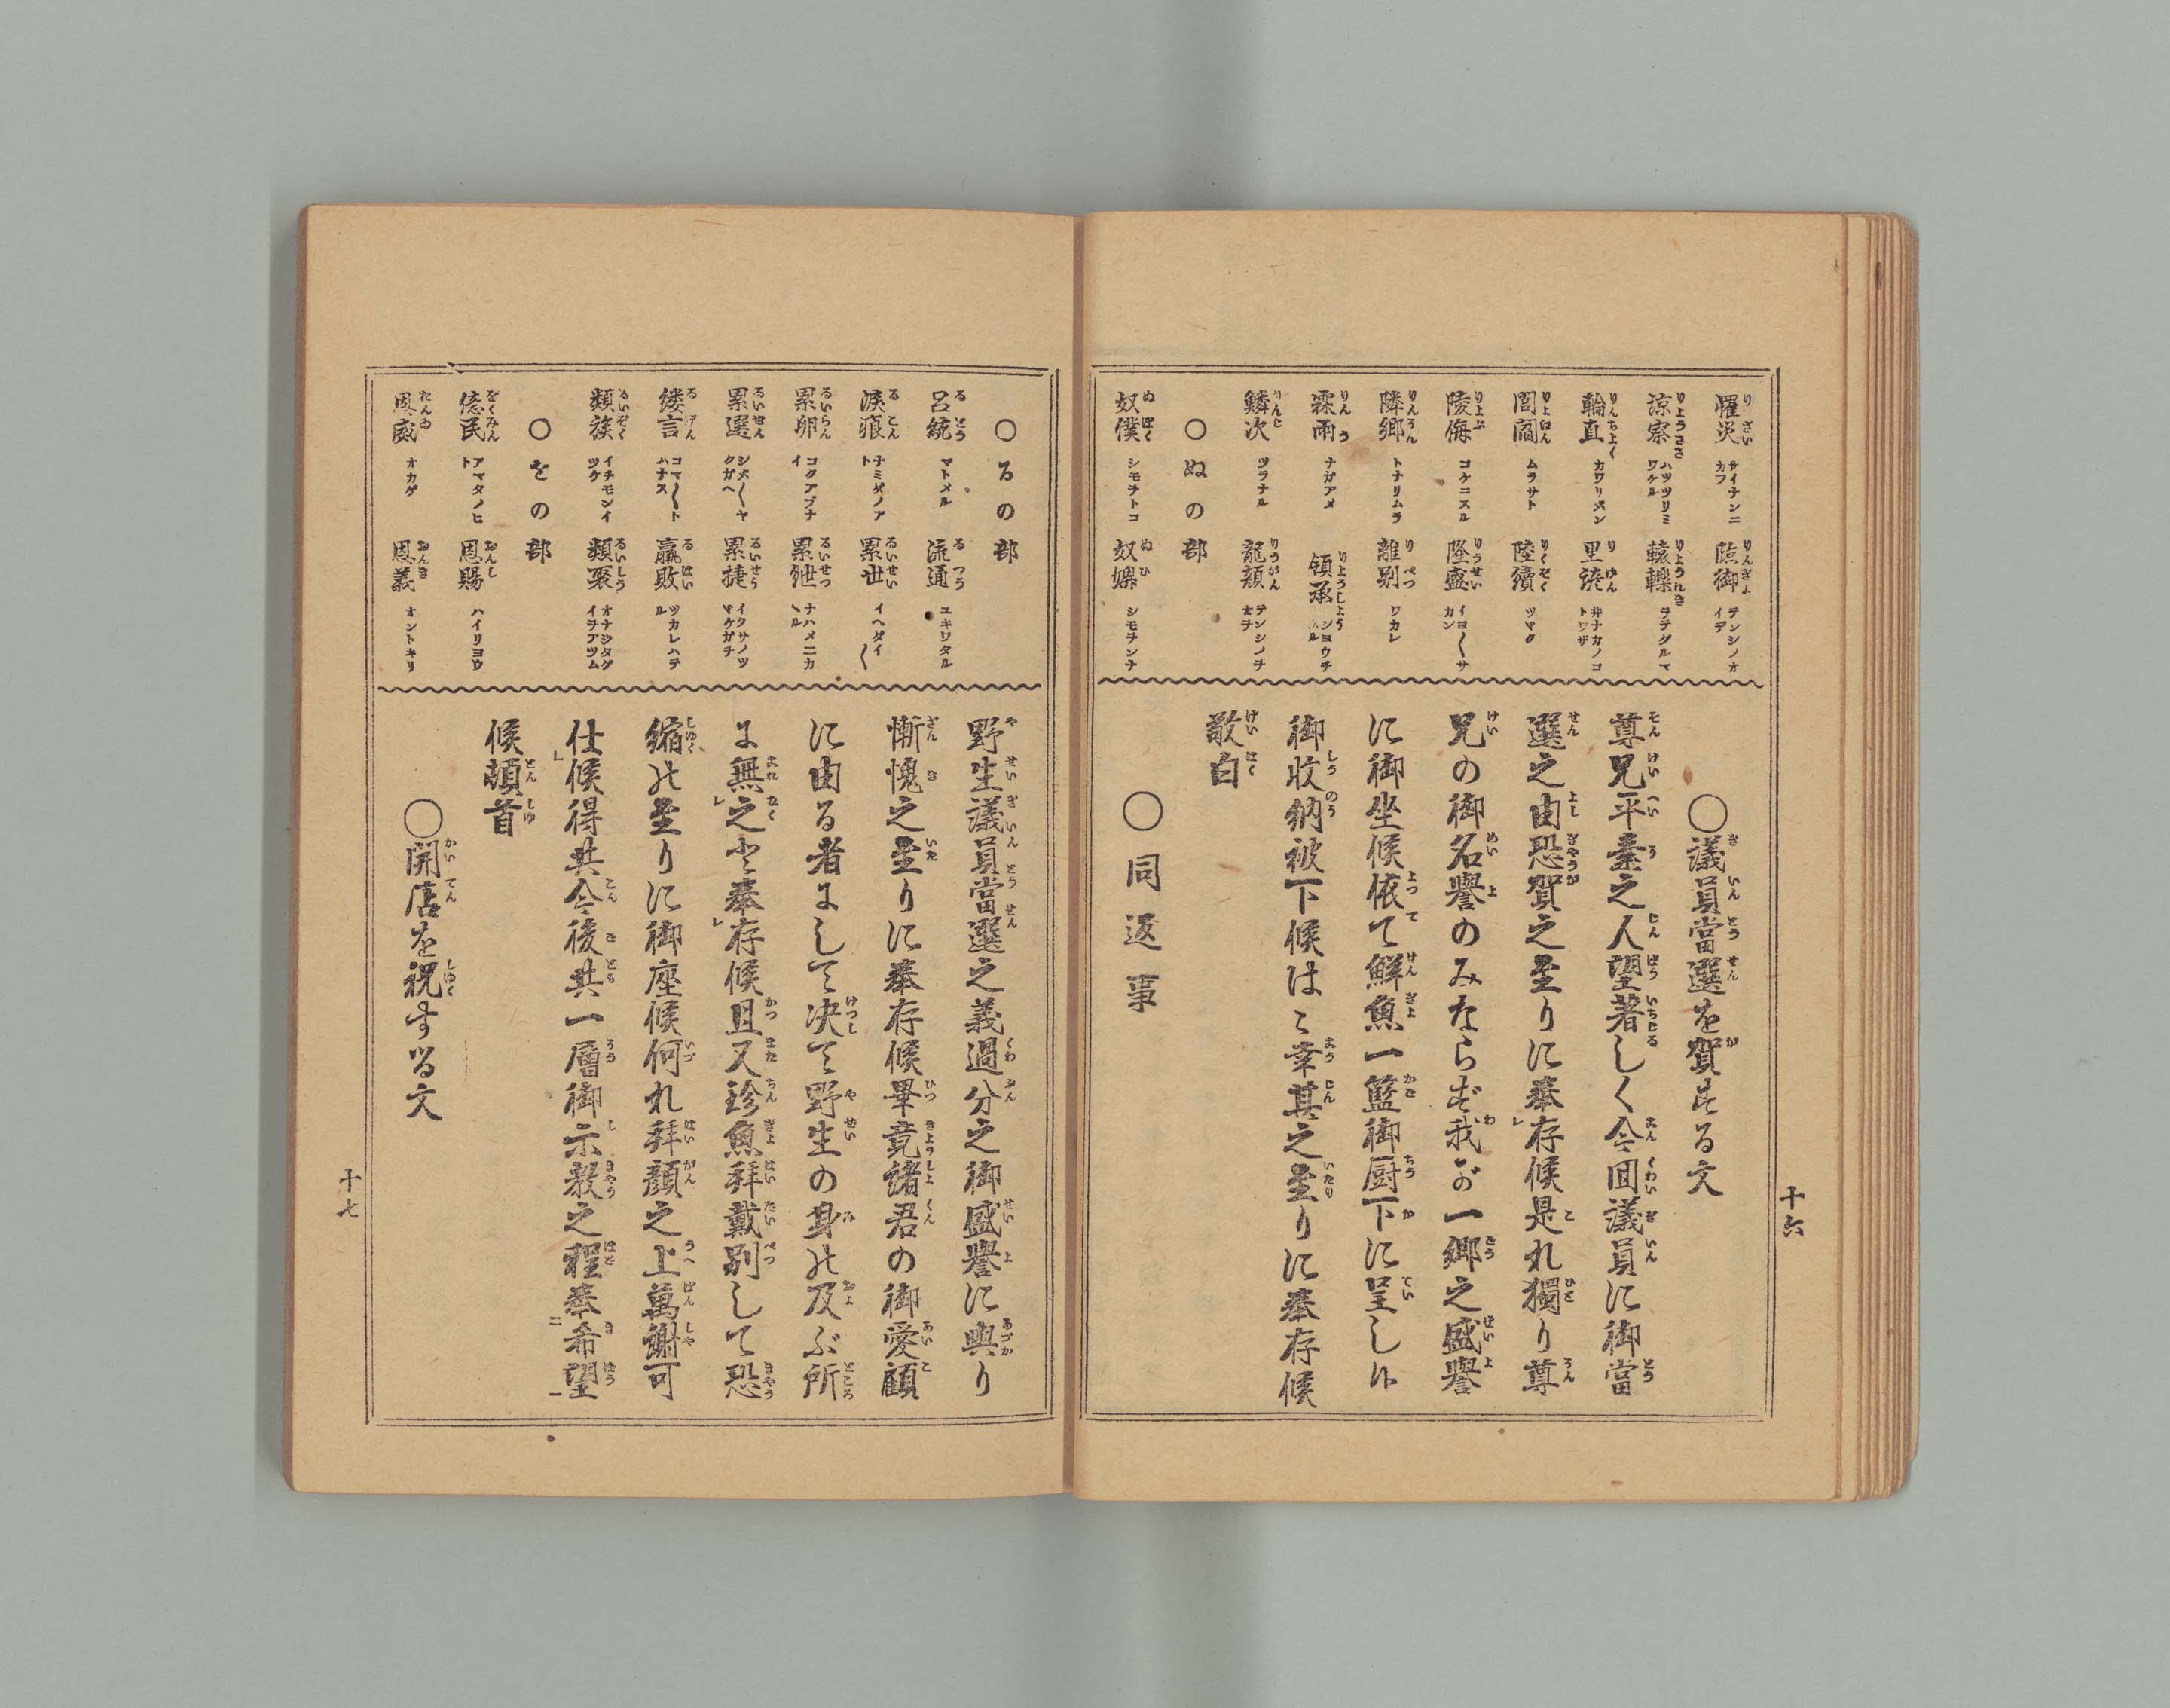 罹災 サイナンニカフ 臨御 テンシノオイデ
諒察 ハツツリミワケル 轗轢 ヲテグルマ
輪直 カワリメン 里諺 井ナカノコトワザ
閭閻 ムラサト 陸續 ツヾク
陵侮 コケニスル 隆盛 イヨ〱サカン
隣郷 トナリムラ 離別 ワカレ
霖雨 ナガアメ 領承 シヨウチ
鱗次 ツラナル 龍顔 テンシノオチ
○ぬの部
奴僕 シモヲトコ 奴婢 シモヲンナ
○議員當選を賀する文
尊兄平素之人望著しく今囬議員に御當
選之由恐賀之至りに奉存候是れ獨り尊
兄の御名譽のみならず我が一郷之盛譽
に御坐候依て鮮魚一籃御厨下に呈し候
御收納被下候はゞ幸甚之至りに奉存候
敬白
○同返事
十六
○るの部
呂統 マトメル 流通 ユキワタル
涙痕 ナミダノアト 累世 イヘダイ〱
累卵 コクアブナイ 累紲 ナハメニカヽル
累選 シメ〱ヤクガヘ 累捷 イクサノツマケガチ
縷言 コマ〱トハナス 羸敗 ツカレハテル
類族 イチモンイツケ 類聚 オナシタグイヲアツム
○をの部
億民 アマタノヒト 恩賜 ハイリヨウ
恩威 オカゲ 恩義 オントキリ
野生議員當選之義過分之御盛譽に與り
慚愧之至りに奉存候畢竟諸君の御愛顧
に由る者にして决て野生の身の及ぶ所
に無之と奉存候且又珍魚拜戴別して恐
縮の至りに御座候何れ拜顔之上萬謝可
仕候得共今後共一層御示教之程奉希望
候頓首
○開店を祝する文
十七